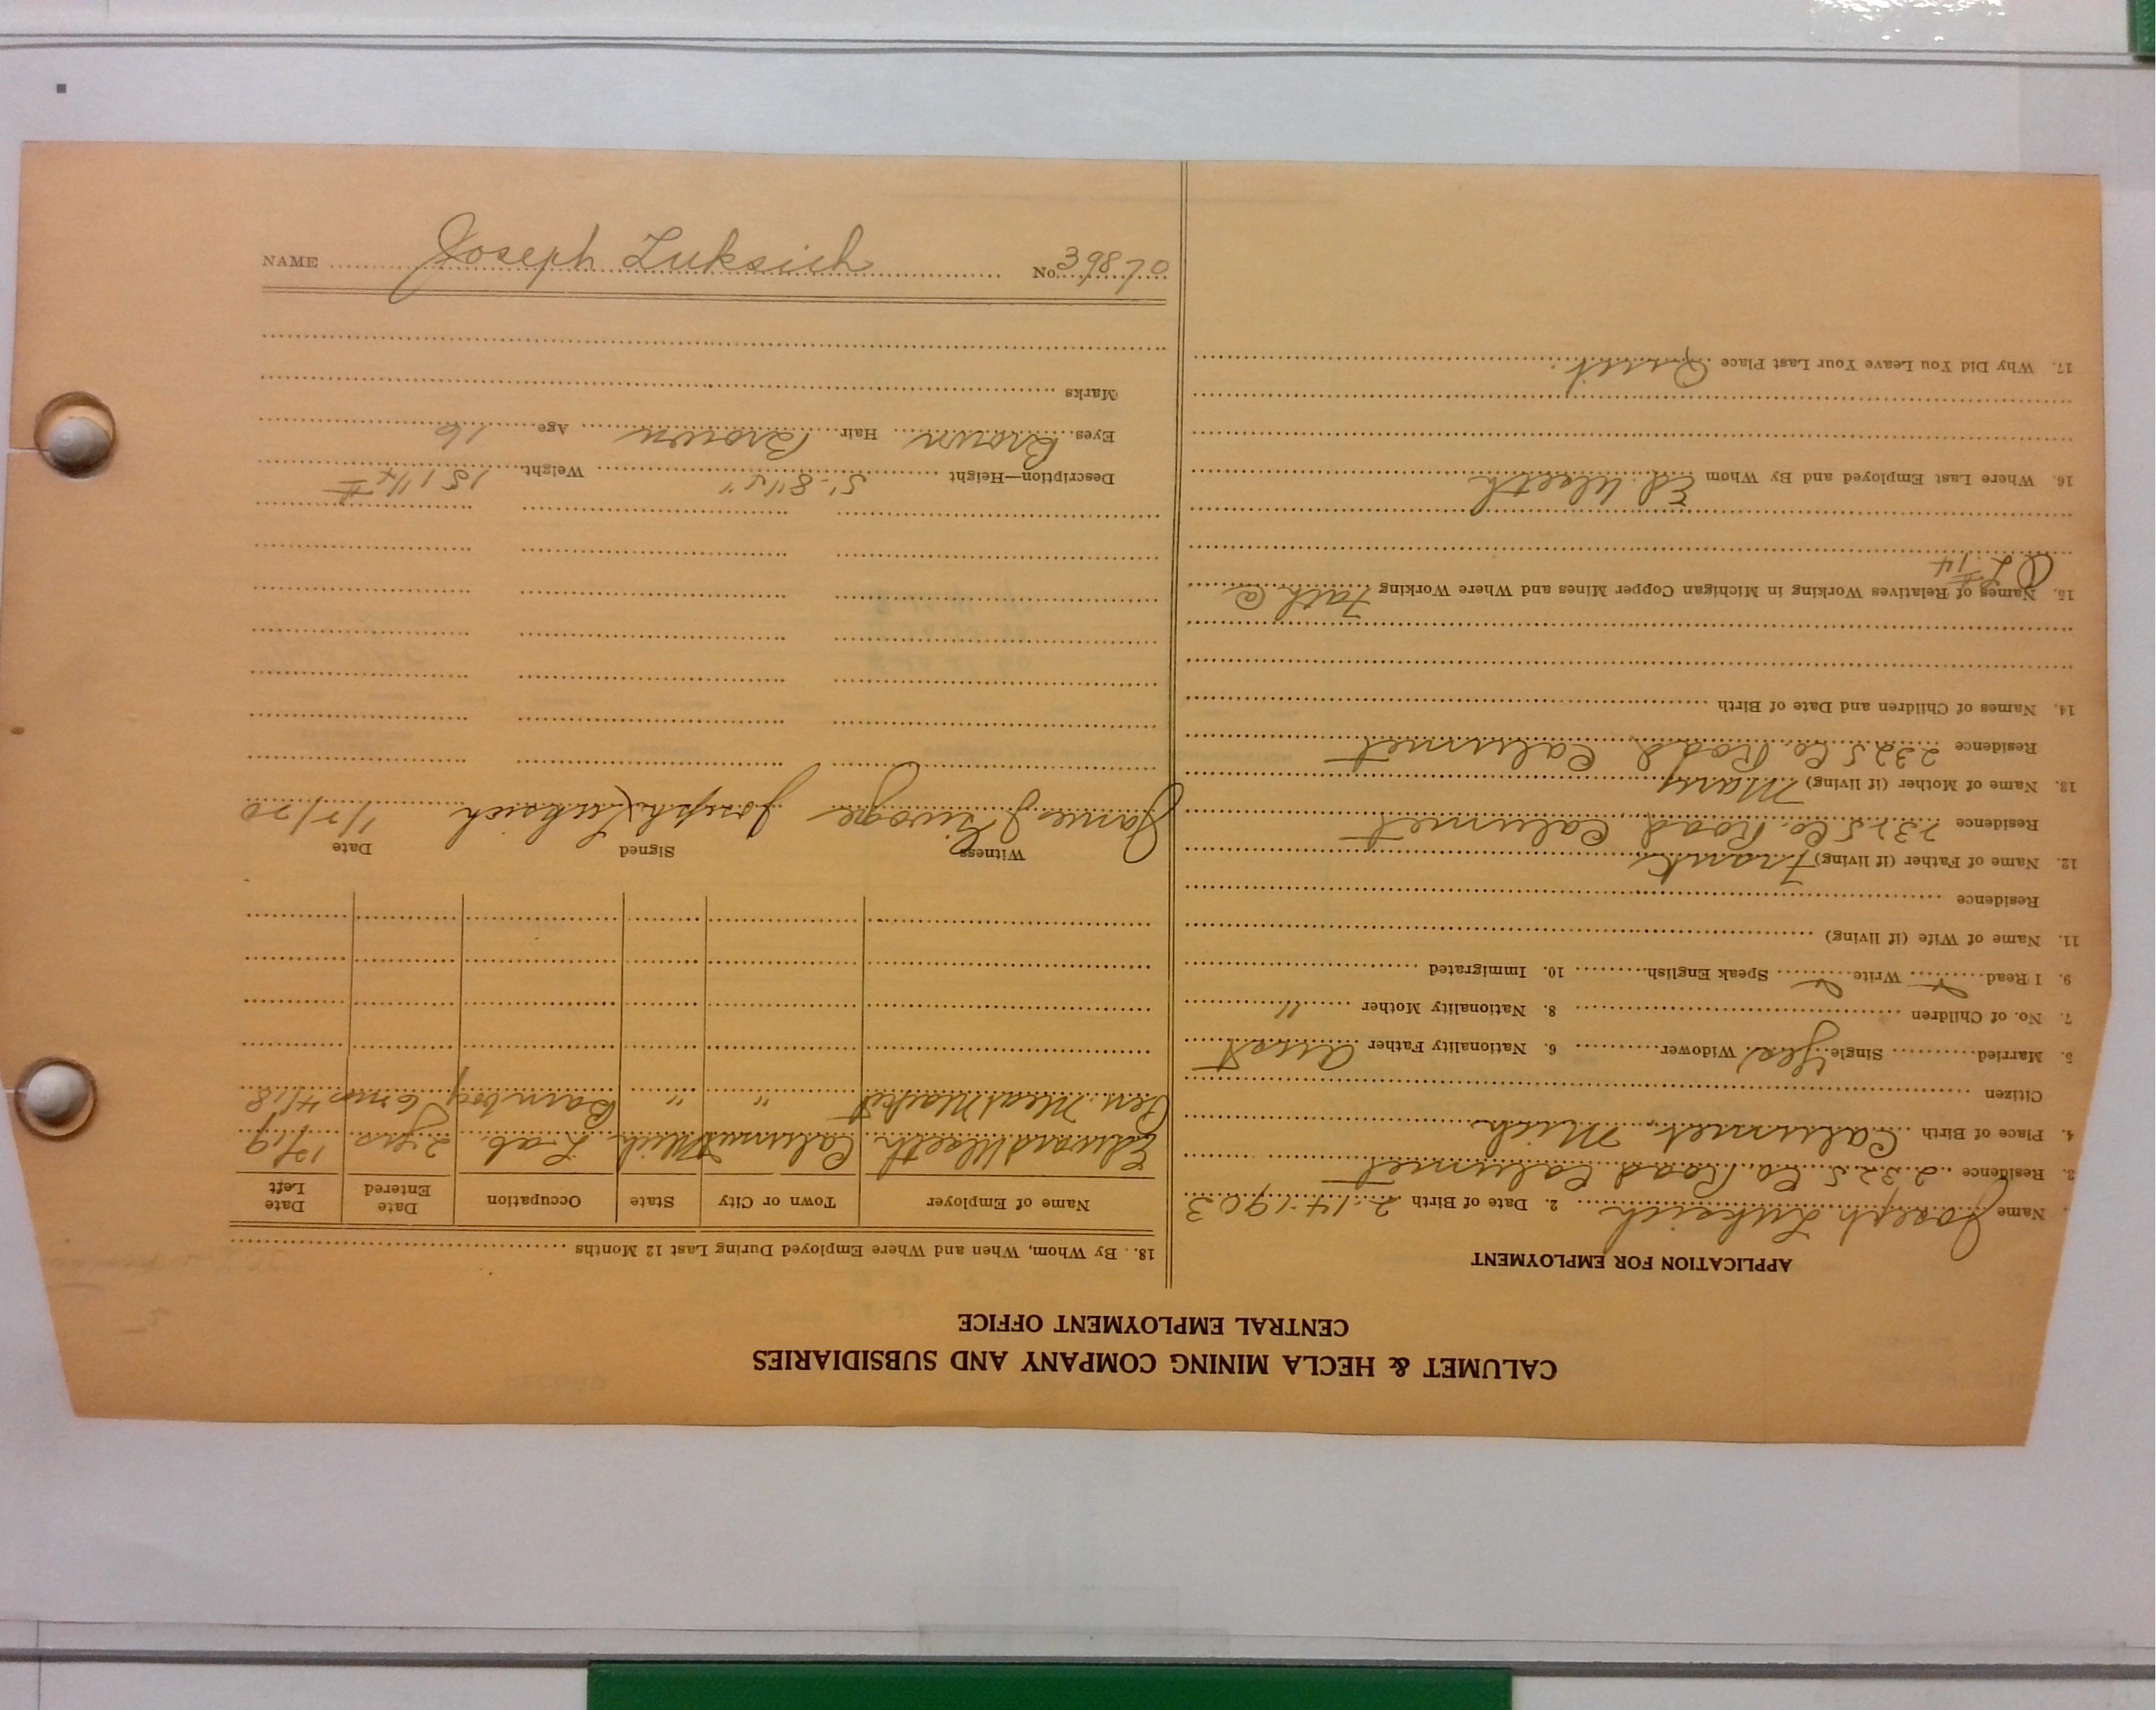 CALUMET & HECLA MINING COMPANY AND SUBSIDIARIES
CENTRAL EMPLOYMENT OFFICE
APPLICATION FOR EMPLOYMENT
Name Joseph Luksich 2. Date of Birth 2-14-1903
3. Residence 2325 Co. Road Calumet
4. Place of Birth Calumet, Mich.
Citizen
5. Married Single Yes Widower 6. Nationality Father Aust
7. No. of Children 8. Nationality Mother "
9. I Read Write Speak English 10. Immigrated
11. Name of Wife (if living)
Residence
12. Name of Father (if living) Frank
Residence 2325 Co. Road Calumet
13. Name of Mother (if living) Mary
Residence 2325 Co. Road Calumet
14. Names of Children and Date of Birth
15. Names of Relatives Working in Michigan Copper Mines and Where Working Fath @
L #14
16. Where Last Employed and By Whom Ed. Ulseth
17. Why Did You Leave Your Last Place Quit.
18. By Whom, When and Where Employed During Last 12 Months
Name of Employer Town or City State Occupation Date Entered Date Left
Edward Ulseth Calumet Mich Lab. 2 yrs 12/19
Meat Market " " Barn boy 6 mos 4/18
Witness Signed Date
James J Joseph Luksich 1/7/20
Description—Height 5'-8 1/2" Weight 151 1/4 #
Eyes Brown Hair Brown Age 16
Marks
NAME Joseph Luksich No. 39870